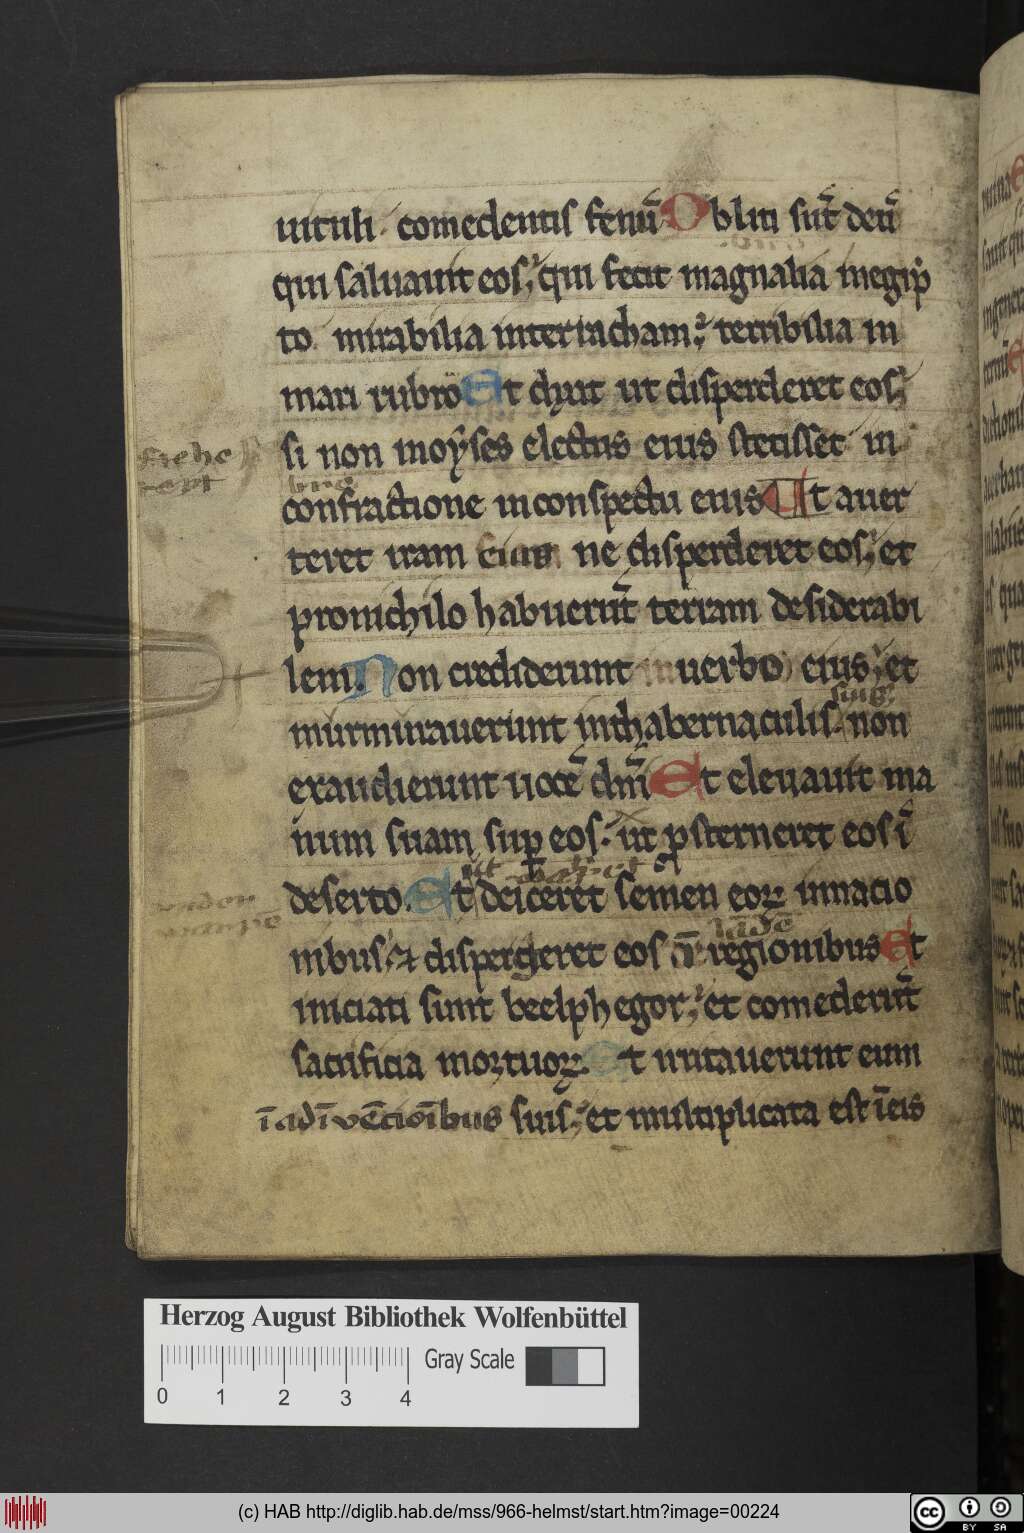 uituli comedentis fenū Obliti sūt deū
qui saluauit eos; qui fecit magnalia inegip
to mirabilia interracham; terribilia in
mari rubro Et dixit ut disperderet eos;
si non moyses electus eius stetisset in
confractione inconspectu eius Ut auer
teret iram eius ne disperderet eos; et
pronichilo habuerūt terram desiderabi
lem. Non crediderunt in uerbo eius; et
murmurauerunt inthabernaculis. non
exaudierunt uocē dn̄i Et eleuauit ma
num suam sup eos. ut psterneret eos ī
deserto. Et deiceret semen eoꝝ innacio
nibus; ⁊ dispergeret eos regionibus Et
iniciati sunt beelphegor; et comederūt
sacrificia mortuoꝝ. Et irritauerunt eum
ī adīvēcionībus suis; et multiplicata est ī eis
Herzog August Bibliothek Wolfenbüttel
Gray Scale
0 1 2 3 4
(c) HAB http://diglib.hab.de/mss/966-helmst/start.htm?image=00224
cc BY SA